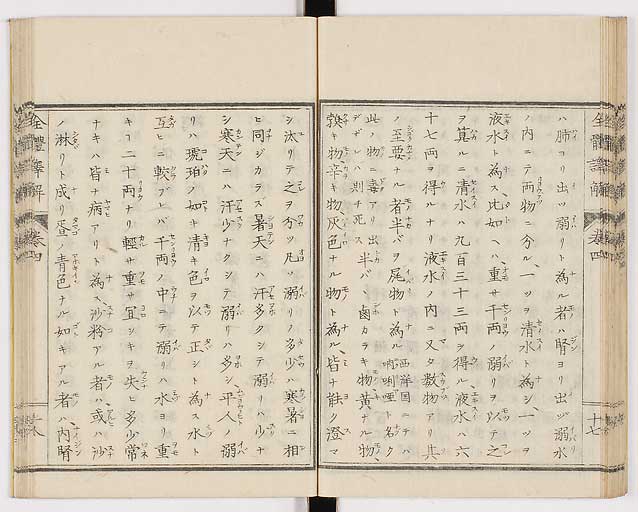 全體譯解
卷四
十七
ハ肺ヨリ出ツ溺リト為ル者ハ腎ヨリ出ヅ溺水
ノ内ニテ両物ニ分ル、一ツヲ清水ト為シ、一ツヲ
液水ト為ス、比如ヘハ重サ千両ノ溺リヲ以テ之
ヲ算ルニ清水ハ九百三十三両ヲ得ル、液水ハ六
十七両ヲ得ルナリ液水ノ内ニ又タ数物アリ其
ノ至要ナル者半バヲ尾物ト為ル
西洋国ニテハ
ト名ク
此ノ物ニ毒アリ出
デザレハ則チ死ス半バ
鹵カラキ物、黄ナル物、
キ物、辛キ物、灰色ナル物ト為ル、皆ナ能ク澄マ
シ汰リテ之ヲ分ツ凡ソ溺リノ多少ハ寒暑ニ相
ヒ同ジカラズ暑天ニハ汗多クシテ溺リハ少ナ
シ寒天ニハ汗少ナクシテ溺リハ多シ、平人ノ溺
リハ琥珀ノ如キ清キ色ヲ以テ正シト為ス水ト
互ヒニ較ブレバ千両ノ中ニテ溺リハ水ヨリ重
キコ二十両ナリ輕サ重サ宜シキヲ失ヒ多少常
ナキハ皆ナ病アリト為ス、沙粉アル者ハ或ハ沙
ノ淋リト成リ蛋ノ青色ナル如キアル者ハ内腎
全體譯解
卷四
十八